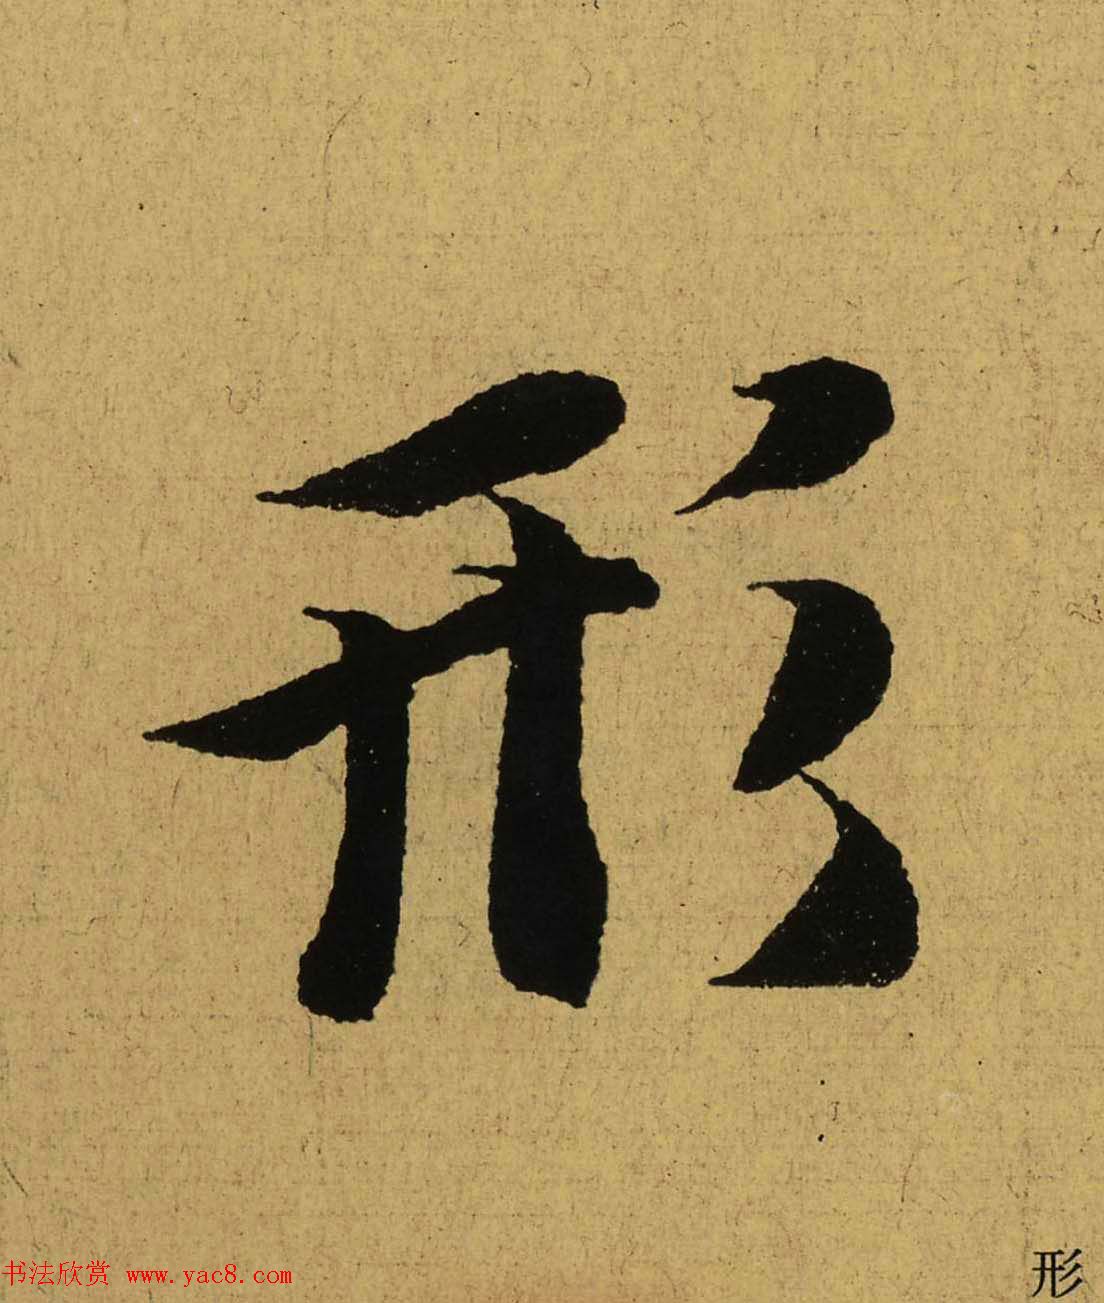 形
书法欣赏 www.yac8.com
形